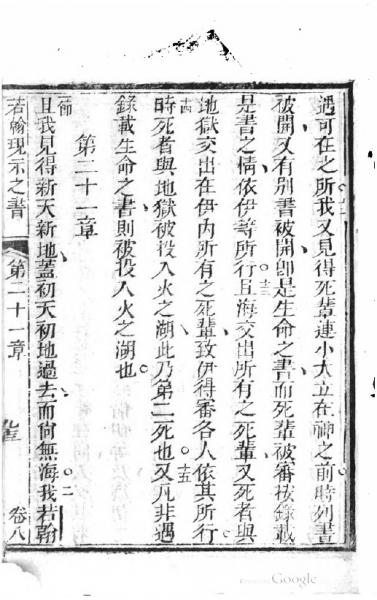 遇可在之所。十二我又見得死輩連小大立在神之前時列書
被開又有别書被開卽是生命之書而死輩被審核錄載
是書之情依伊等所行。十三且海交出所有之死輩又死者與
地獄交出在伊內所有之死輩致伊得審各人依其所行。
十四時死者與地獄被投入火之湖此乃第二死也。十五又凡非遇
錄載生命之書則被投入火之湖也。
第二十一章
一節且我見得新天新地蓋初天初地過去而尙無海。二我若翰
若翰現示之書 第二十一章 卷八
Google